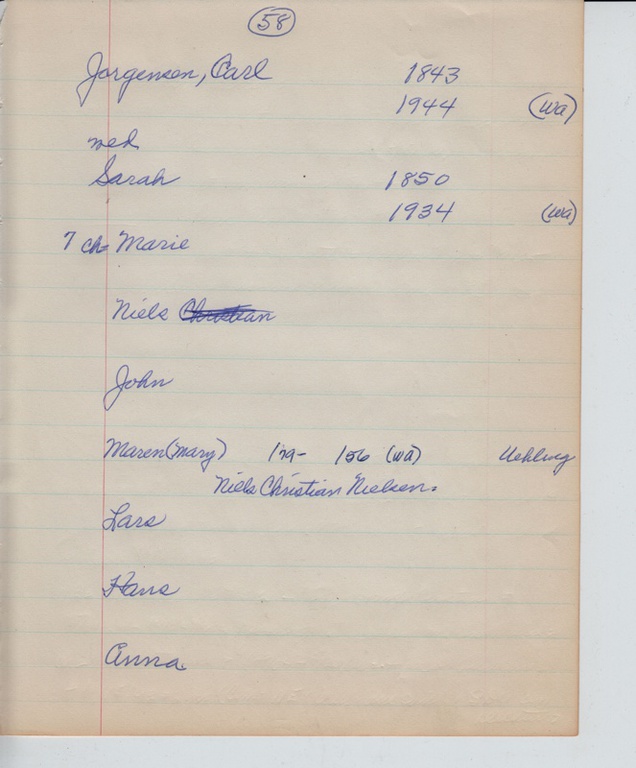 58
Jorgensen, Carl 1843
1944 (wa)
med
Sarah 1850
1934 (wa)
7 ch- Marie
Niels Christian
John
Maren (Mary) 1/79- 1/56 (wa) Uehling
Niels Christian Nielsen.
Lars
Hans
Anna.